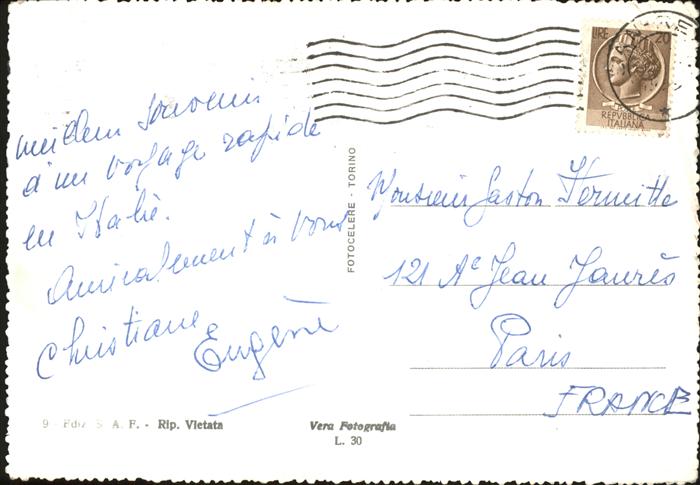 meilleur souvenir
d'un voyage rapide
en Italie.
Amicalement à vous
Christiane
Eugène
9 - Ediz. S. A. F. - Rip. Vietata
Vera Fotografia
L. 30
FOTOCELERE - TORINO
LIRE 20
REPVBBLICA
ITALIANA
Monsieur Gaston
121 Ae Jean Jaurès
Paris
FRANCE